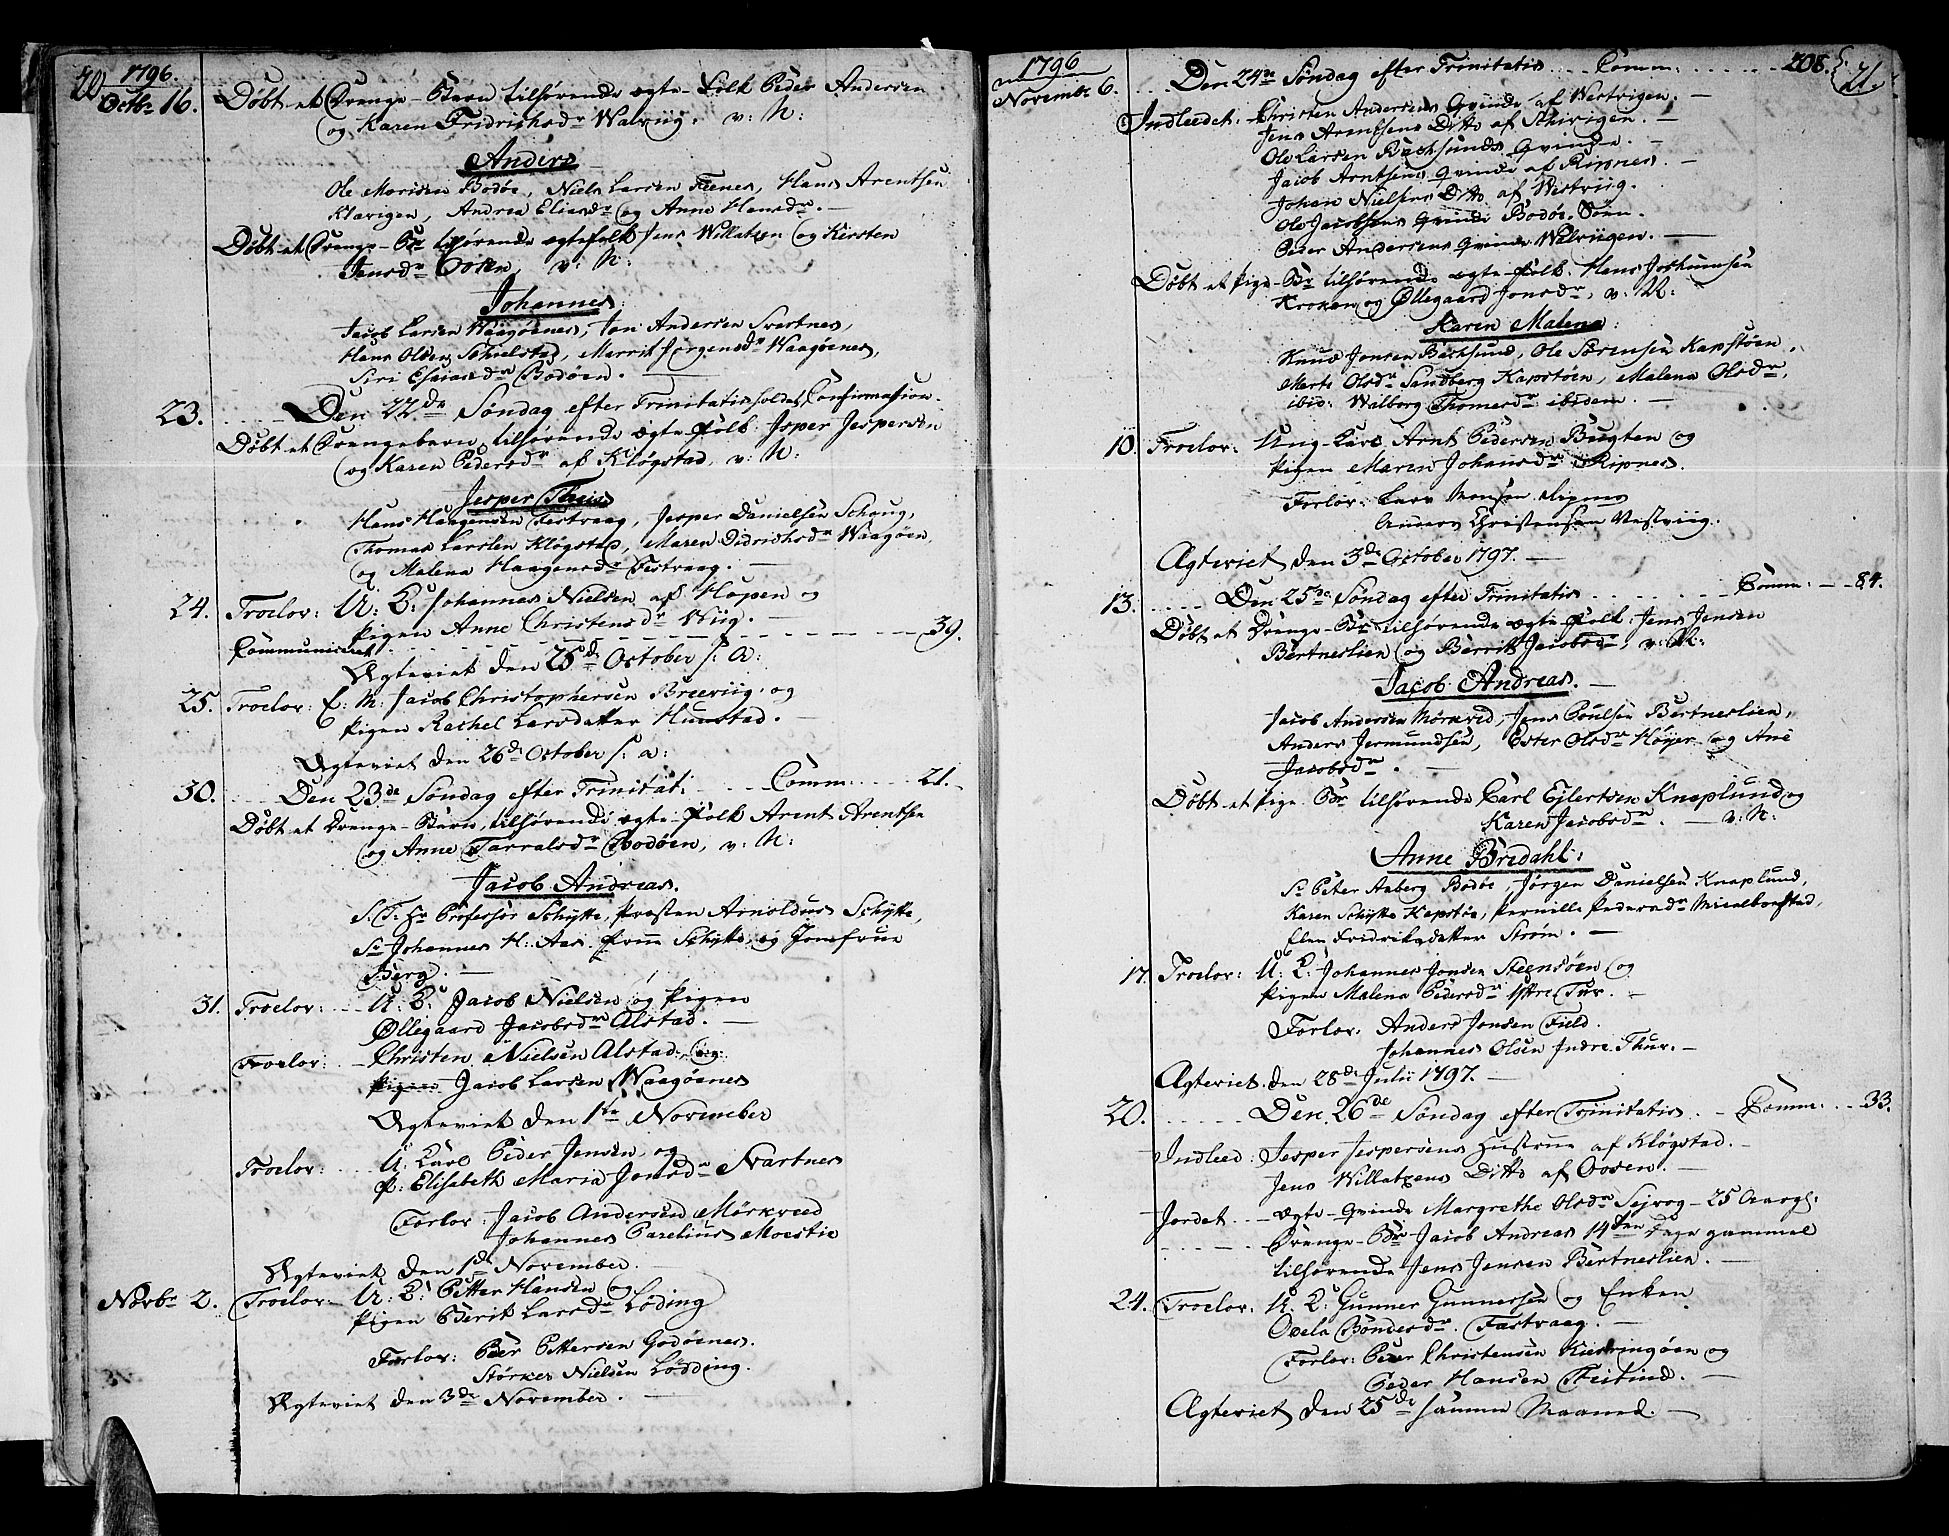 20 1796.
Octbr 16. Døbt et Drenge-Barn tilhørende ægte-Folk Peder Andersen
og Karen Fridrichsdr Walviig. v: N:
Anders
Ole Morisen Bodøe, Niels Larsen Feenes, Hans Arentsen
Kløvigen, Andrea Eliasdr og Anne Hansdr. —
Døbt et Drenge-Br tilhørende ægtefolk Jens Willatsen og Kirsten
Jensdr Oosen, v: N:
Johannes
Jacob Larsen Waagøenes, Jon Andersen Svartnes,
Hans Olsen Schielstad, Marrit Jørgensdr Waagøenes,
Siri Esaiasdr Bodøen. —
23. Den 22de Søndag efter Trinitatis holdet Confirmasion.
Døbt et Drengebarn tilhørende ægte-Folk Jesper Jespersen
og Karen Pedersdr af Kløgstad, v: N:
Jesper Theis
Hans Haagensen Festvaag, Jesper Danielsen Schaug,
Thomas Larsen Kløgstad, Maren Didrichsdr Waagøen,
og Malena Haagensdr Festvaag. —
24. Troelov: U: K: Johannes Nielsen af Hopen og
Pigen Anne Christensdr Wiig. —
Communicent 39.
Ægteviet den 25de October s: a:
25. Troelov: E: M: Jacob Christophersen Breeviig, og
Pigen Rachel Larsdatter Hunstad. —
Ægteviet den 26de October s: a:
30. Den 23de Søndag efter Trinitat: Comm: 21.
Døbt et Drenge-Barn, tilhørende ægte-Folk Arent Arentsen
og Anne Tarralsdr Bodøen, v: N:
Jacob Andreas.
S: T: Hr Professor Schytte, Præsten Arnoldus Schytte,
Sr Johannes H: Aas, Frue Schytte, og Jomfrue
Berg. —
31. Troelov: U: K: Jacob Nielsen og Pigen
Øllegaard Jacobsdr Alstad. —
Forlov: Christen Nielsen Alstad, og
Pigen Jacob Larsen Waagøenes
Ægteviet den 1ste November
Troelov: U: Karl Peder Jensen og
P: Elisabeth Maria Jonsdr Svartnes
Forlov: Jacob Andersen Mørkveed
Johannes Parelius Moestie
Ægteviet den 1de November. —
Novbr 2. Troelov— U: K: Petter Hansen og
Pigen Berit Larsdr Løding
Forlov: Peer Pettersen Godøenes.
Størker Nielsen Lødding.
Ægteviet den 3de November. —
1796 208. 21.
Novembr 6. Den 24de Søndag efter Trinitatis Comm:
Indleedet: Christen Andersens Qvinde af Westvigen. —
Jens Arentsens Ditto af Skivigen. —
Ole Larsen Bachsunds Qvinde. —
Jacob Arntsens Qvinde af Ripnes. —
Johan Nielsens Ditto af Westviig.
Ole Jacobsens Qvinde Bodøe-Søen.
Peder Andersens Qvinde Walviigen. —
Døbt et Pige-Br tilhørende ægte-Folk Hans Jochumsen
Kroken og Øllegaard Jonsdr, v: N:
Karen Malena:
Knud Jonsen Bachsund, Ole Sørensen Kapstøen,
Marte Olsdr Sandberg Kapstøen, Malena Olsdr,
ibid: Walborg Thomasdr ibidem. —
10. Troelov: Ung-Karl Arnt Pedersen Bugten og
Pigen Maren Johansdr Ripnes.
Forlov: Lars Monsen Ripnes
Anders Christensen Vestviig.
Ægteviet den 3de October 1797. —
13. Den 25de Søndag efter Trinitatis Comm: 84.
Døbt et Drenge-Br tilhørende ægte-Folk: Jens Jensen
Bertneslien og Berrit Jacobsdr, v: N:
Jacob Andreas. —
Jacob Andersen Mørkved, Jens Poulsen Bertneslien,
Anders Jermundsen, Ester Olsdr Høyer og Ane
Jacobsdr.
Døbt et Pige-Br tilhørende Carl Ejlertsen Knaplund og
Karen Jacobsdr. — v: N:
Anne Bredahl:
Sr Peter Aaberg Bodøe, Jørgen Danielsen Knaplund,
Karen Schytte Kapstøe, Pernille Pedersdr
Elen Fridriksdatter Strøm. —
17. Troelov: U: K: Johannes Jonsen Steensøen og
Pigen Malena Pedersdr Yttre Tur. —
Forlov: Anders Jonsen Field.
Johannes Olsen Indre Thur. —
Ægteviet den 28de Julii 1797. —
20. Den 26de Søndag efter Trinitatis. Comm: 33.
Indleed: Jesper Jespersens Hustrue af Kløgstad. —
Jens Willatzens Ditto af Oosen. —
Jordet ægte-Qvinde Margrethe Olsdr Sejvog—25 Aar gl:
Drenge-Br Jacob Andreas 14ten Dage gammel
tilhørende Jens Jensen Bertneslien. —
24. Troelov: U. K: Gunner Gunnersen og Enken
Ovela Bøndesdr. Fæstvaag. —
Forlov: Peder Christensen Kierringøen og
Peder Hansen Festind. —
Ægteviet den 25de samme Maaned. —